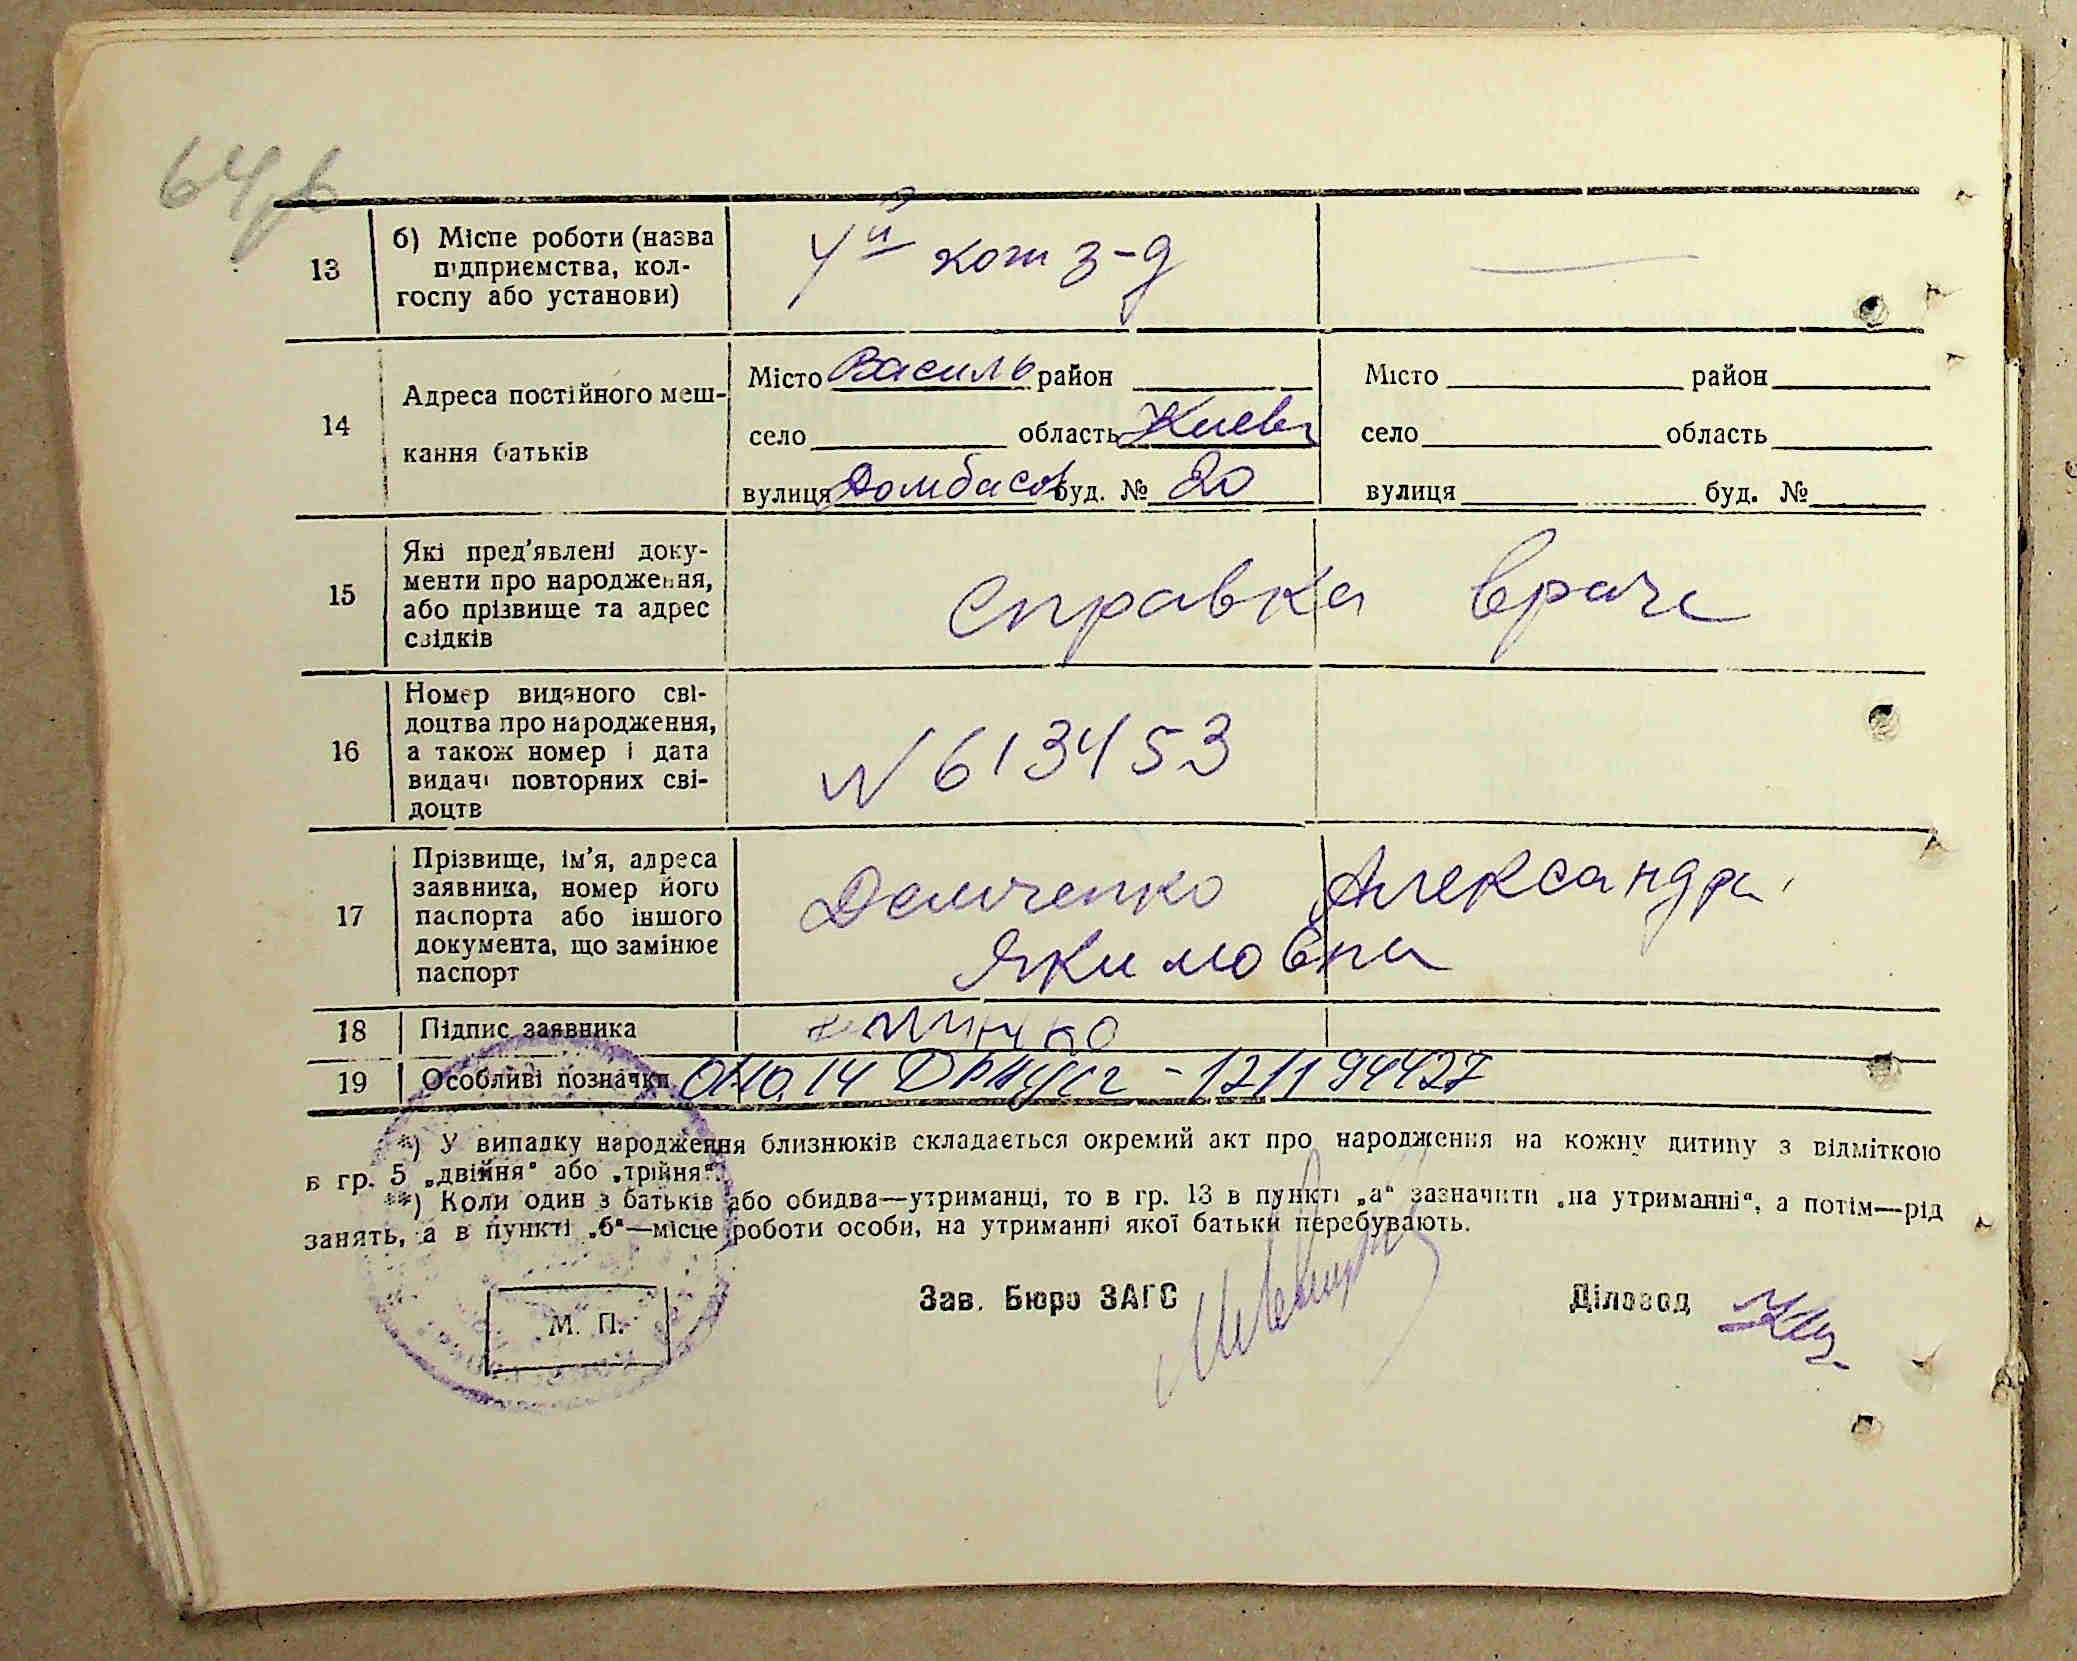 13
б) Місце роботи (назва
підприємства, кол-
госпу або установи)
4й кож з-д
14
Адреса постійного меш-
кання батьків
Місто Василь район
село область Киевс
вулиця буд. № 20
Місто район
село область
вулиця буд. №
15
Які пред'явлені доку-
менти про народження,
або прізвище та адрес
свідків
Справка врача
16
Номер виданого сві-
доцтва про народження,
а також номер і дата
видачі повторних сві-
доцтв
N 613453
17
Прізвище, ім'я, адреса
заявника, номер його
паспорта або іншого
документа, що замінює
паспорт
Демченко Александра
Якимовна
18 Підпис заявника
19 Особливі позначки
*) У випадку народження близнюків складається окремий акт про народження на кожну дитину з відміткою
в гр. 5 „двійня“ або „трійня“.
**) Коли один з батьків або обидва—утриманці, то в гр. 13 в пункті „а“ зазначити „на утриманні“, а потім—рід
занять, а в пункті „б“—місце роботи особи, на утриманні якої батьки перебувають.
Зав. Бюро ЗАГС
Діловод
М. П.